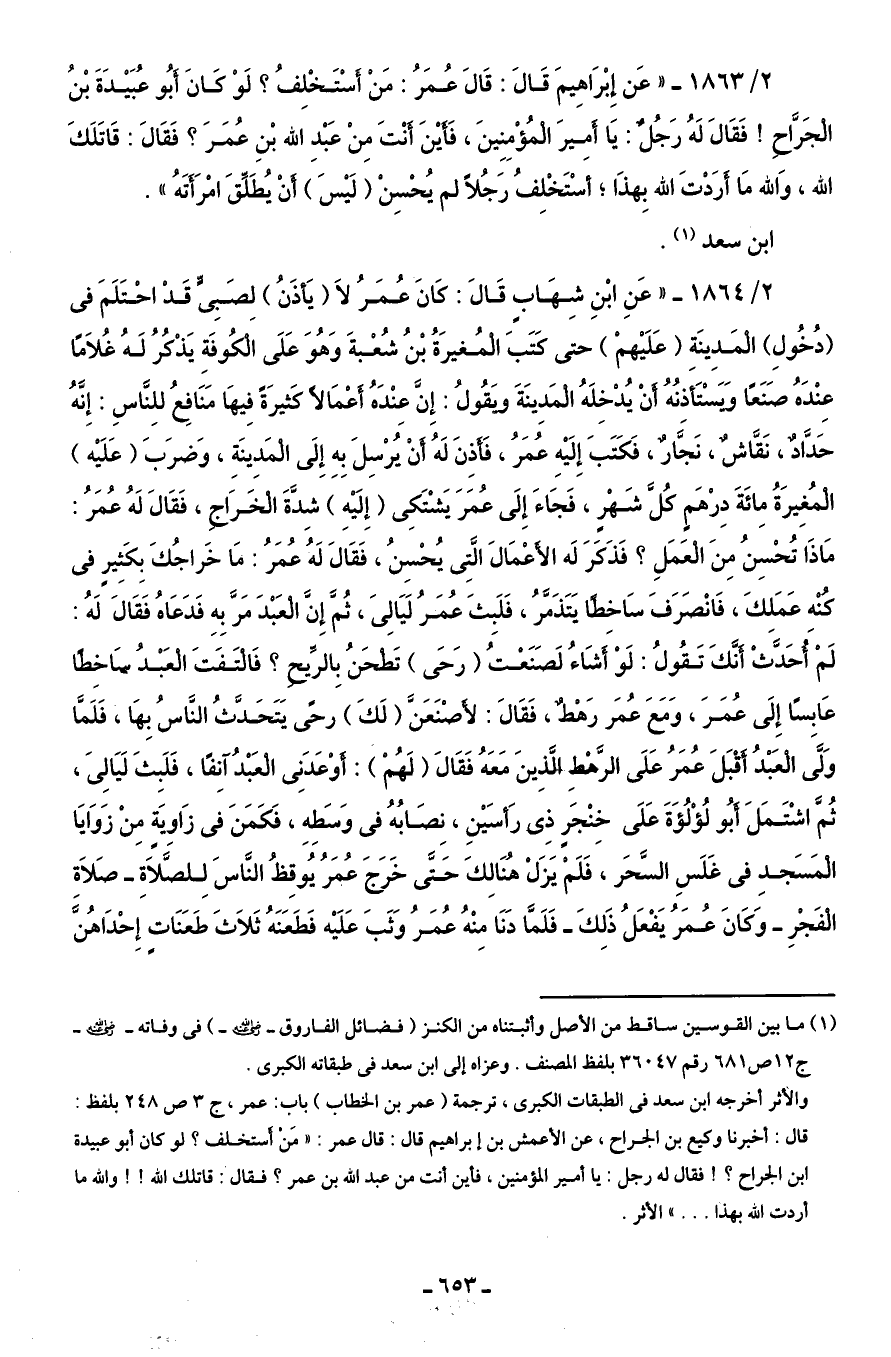 ٢/ ١٨٦٣ - « عَن إِبْرَاهِيمَ قَـالَ : قَالَ عُـمَرُ : مَنْ أَسْتَـخْلِفُ ؟ لَوْ كَـانَ أَبُو عُبَيْـدَةَ بْنُ
الجَرَّاحِ ! فَقَالَ لَهُ رَجُلٌ : يَا أَمِـيرَ الْمُؤْمِنِينَ ، فَأَيْنَ أَنْتَ مِنْ عَبْدِ الله بْنِ عُمَـرَ ؟ فَقَالَ : قَاتَلَكَ
الله ، وَالله مَا أَرَدْتَ الله بِهذَا ؛ أسْتَخْلِفُ رَجُلاً لم يُحْسِنْ ( لَيْسَ ) أَنْ يُطَلِّقَ امْرَأَتَهُ » .
ابن سعد (١) .
٢/ ١٨٦٤ - « عَنِ ابْنِ شِـهَـابٍ قَـالَ : كَانَ عُـمَـرُ لاَ ( يَأذَنُ ) لِصَبِىٍّ قَـدْ احْتَلَمَ فِى
(دُخُولِ) الْمَـدِينَةِ ( عَلَيْهِمْ ) حتى كَتَبَ الْمُـغِيرَةُ بْنُ شُعْبَةَ وَهُوَ عَلَى الْكُوفَةِ يَذْكُرُ لَـهُ غُلاَمًا
عِنْدَهُ صَنَعًا وَيَسْتَأذِنُهُ أَنْ يُدْخِلَهُ الْمَدِينَةَ وَيَقُولُ : إِنَّ عِنْدَهُ أَعْمَالاً كَثِيرَةً فِيهَا مَنَافِعُ لِلنَّاسِ : إِنَّهُ
حَدَّادٌ ، نَقَّاشٌ ، نَجَّارٌ ، فَكَتَبَ إِلَيْهِ عُمَرُ ، فَأَذِنَ لَهُ أَنْ يُرْسِلَ بِهِ إِلَى الْمَدِينَةِ ، وَضَرَبَ ( عَلَيْهِ )
الْمُغِيرَةُ مِائَةَ دِرْهَمٍ كُلَّ شَـهْرٍ ، فَجَاءَ إِلَى عُمَرَ يَشْتَكِى ( إِلَيْهِ ) شِدَّةَ الْخَـرَاجِ ، فَقَالَ لَهُ عُمَرُ :
مَاذَا تُحْسِنُ مِنَ الْعَمَلِ ؟ فَذَكَرَ لَه الأَعْمَالَ الَّتِى يُحْسِنُ ، فَقَالَ لَهُ عُمَرُ : مَا خَرَاجُكَ بِكَثِيرٍ فِى
كُنْهِ عَمَلِكَ ، فَانْصَرَفَ سَاخِطًا يَتَذَمَّرُ ، فَلَبِثَ عُمَـرُ لَيَالِىَ ، ثُمَّ إِنَّ الْعَبْدَ مَرَّ بِهِ فَدَعَاهُ فَقَالَ لَهُ :
لَمْ أُحَدَّثْ أَنَّكَ تَـقُولُ : لَوْ أَشَاءُ لَصَنَعْـتُ ( رَحَى ) تَطْحَنُ بِالرِّيحِ ؟ فَالْتَـفَتَ الْعَبْـدُ سَاخِطًا
عَابِسًا إِلَى عُمَـرَ ، وَمَعَ عُمَرَ رَهْطٌ ، فَقَالَ : لأَصْنَعَنَّ ( لَكَ ) رحًى يَتَحَـدَّثُ النَّاسُ بِهَا ، فَلَمَّا
وَلَّى الْعَبْدُ أَقْبَلَ عُمَرُ عَلَى الرَّهْطِ الَّذِينَ مَعَهُ فَقَالَ ( لَهُمْ ) : أَوْعَدَنِى الْعَبْدُ آنِفًا ، فَلَبِثَ لَيَالِىَ ،
ثُمَّ اشْتَـمَلَ أَبُو لُؤْلُؤَةَ عَلَى خِنْجَرٍ ذِى رَأسَيْنِ ، نِصَابُهُ فِى وَسَطِهِ ، فَكَمَنَ فِى زَاوِيَةٍ مِنْ زَوَايَا
الْمَسْجِـدِ فِى غَلَسِ السَّحَرِ ، فَلَمْ يَزَلْ هُنَالِكَ حَـتَّى خَرَجَ عُمَرُ يُوقِظُ النَّاسَ لِـلصَّلاَةِ - صَلاَةِ
الْفَجْرِ - وَكَانَ عُـمَرُ يَفْعَلُ ذَلِكَ - فَلَمَّا دَنَا مِنْهُ عُمَـرُ وَثَبَ عَلَيْهِ فَطَعَنَهُ ثَلاَثَ طَعَنَاتٍ إِحْدَاهُنَّ
(١) مـا بين القـوسـين سـاقـط من الأصل وأثبـتناه من الكنز ( فـضـائل الفـاروق - رضي الله عنه - ) فى وفـاته - رضي الله عنه -
ج١٢ ص٦٨١ رقم ٣٦٠٤٧ بلفظ المصنف . وعزاه إلى ابن سعد فى طبقاته الكبرى .
والأثر أخرجه ابن سعد فى الطبقات الكبرى ، ترجمة ( عمر بن الخطاب ) باب: عمر ، ج ٣ ص ٢٤٨ بلفظ :
قال : أخبرنا وكيع بن الجـراح ، عن الأعمش بن إبراهيم قال : قال عمر : « مَنْ أستخـلف ؟ لو كان أبو عبيدة
ابن الجراح ؟ ! فقال له رجل : يا أمير المؤمنين ، فأين أنت من عبد الله بن عمر ؟ فـقال : قاتلك الله ! ! والله ما
أردت الله بهذا . . . » الأثر .
- ٦٥٣ -